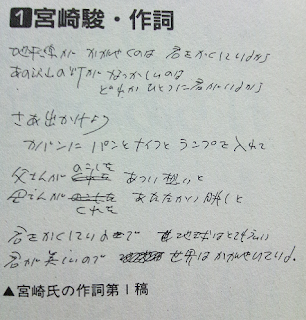 1宮崎駿・作詞
地平線が かがやくのは 君をかくしているから
あの沢山の灯が なつかしいのは
どれかひとつに君がいるから
さあ出かけよう
カバンに パンとナイフと ランプを 入れて
父さんが のこした あつい想いと
母さんが くれた あたたかい
君をかくしているので 地球は
君が 美しいので 世界は かがやいている。
▲宮崎氏の作詞第1稿